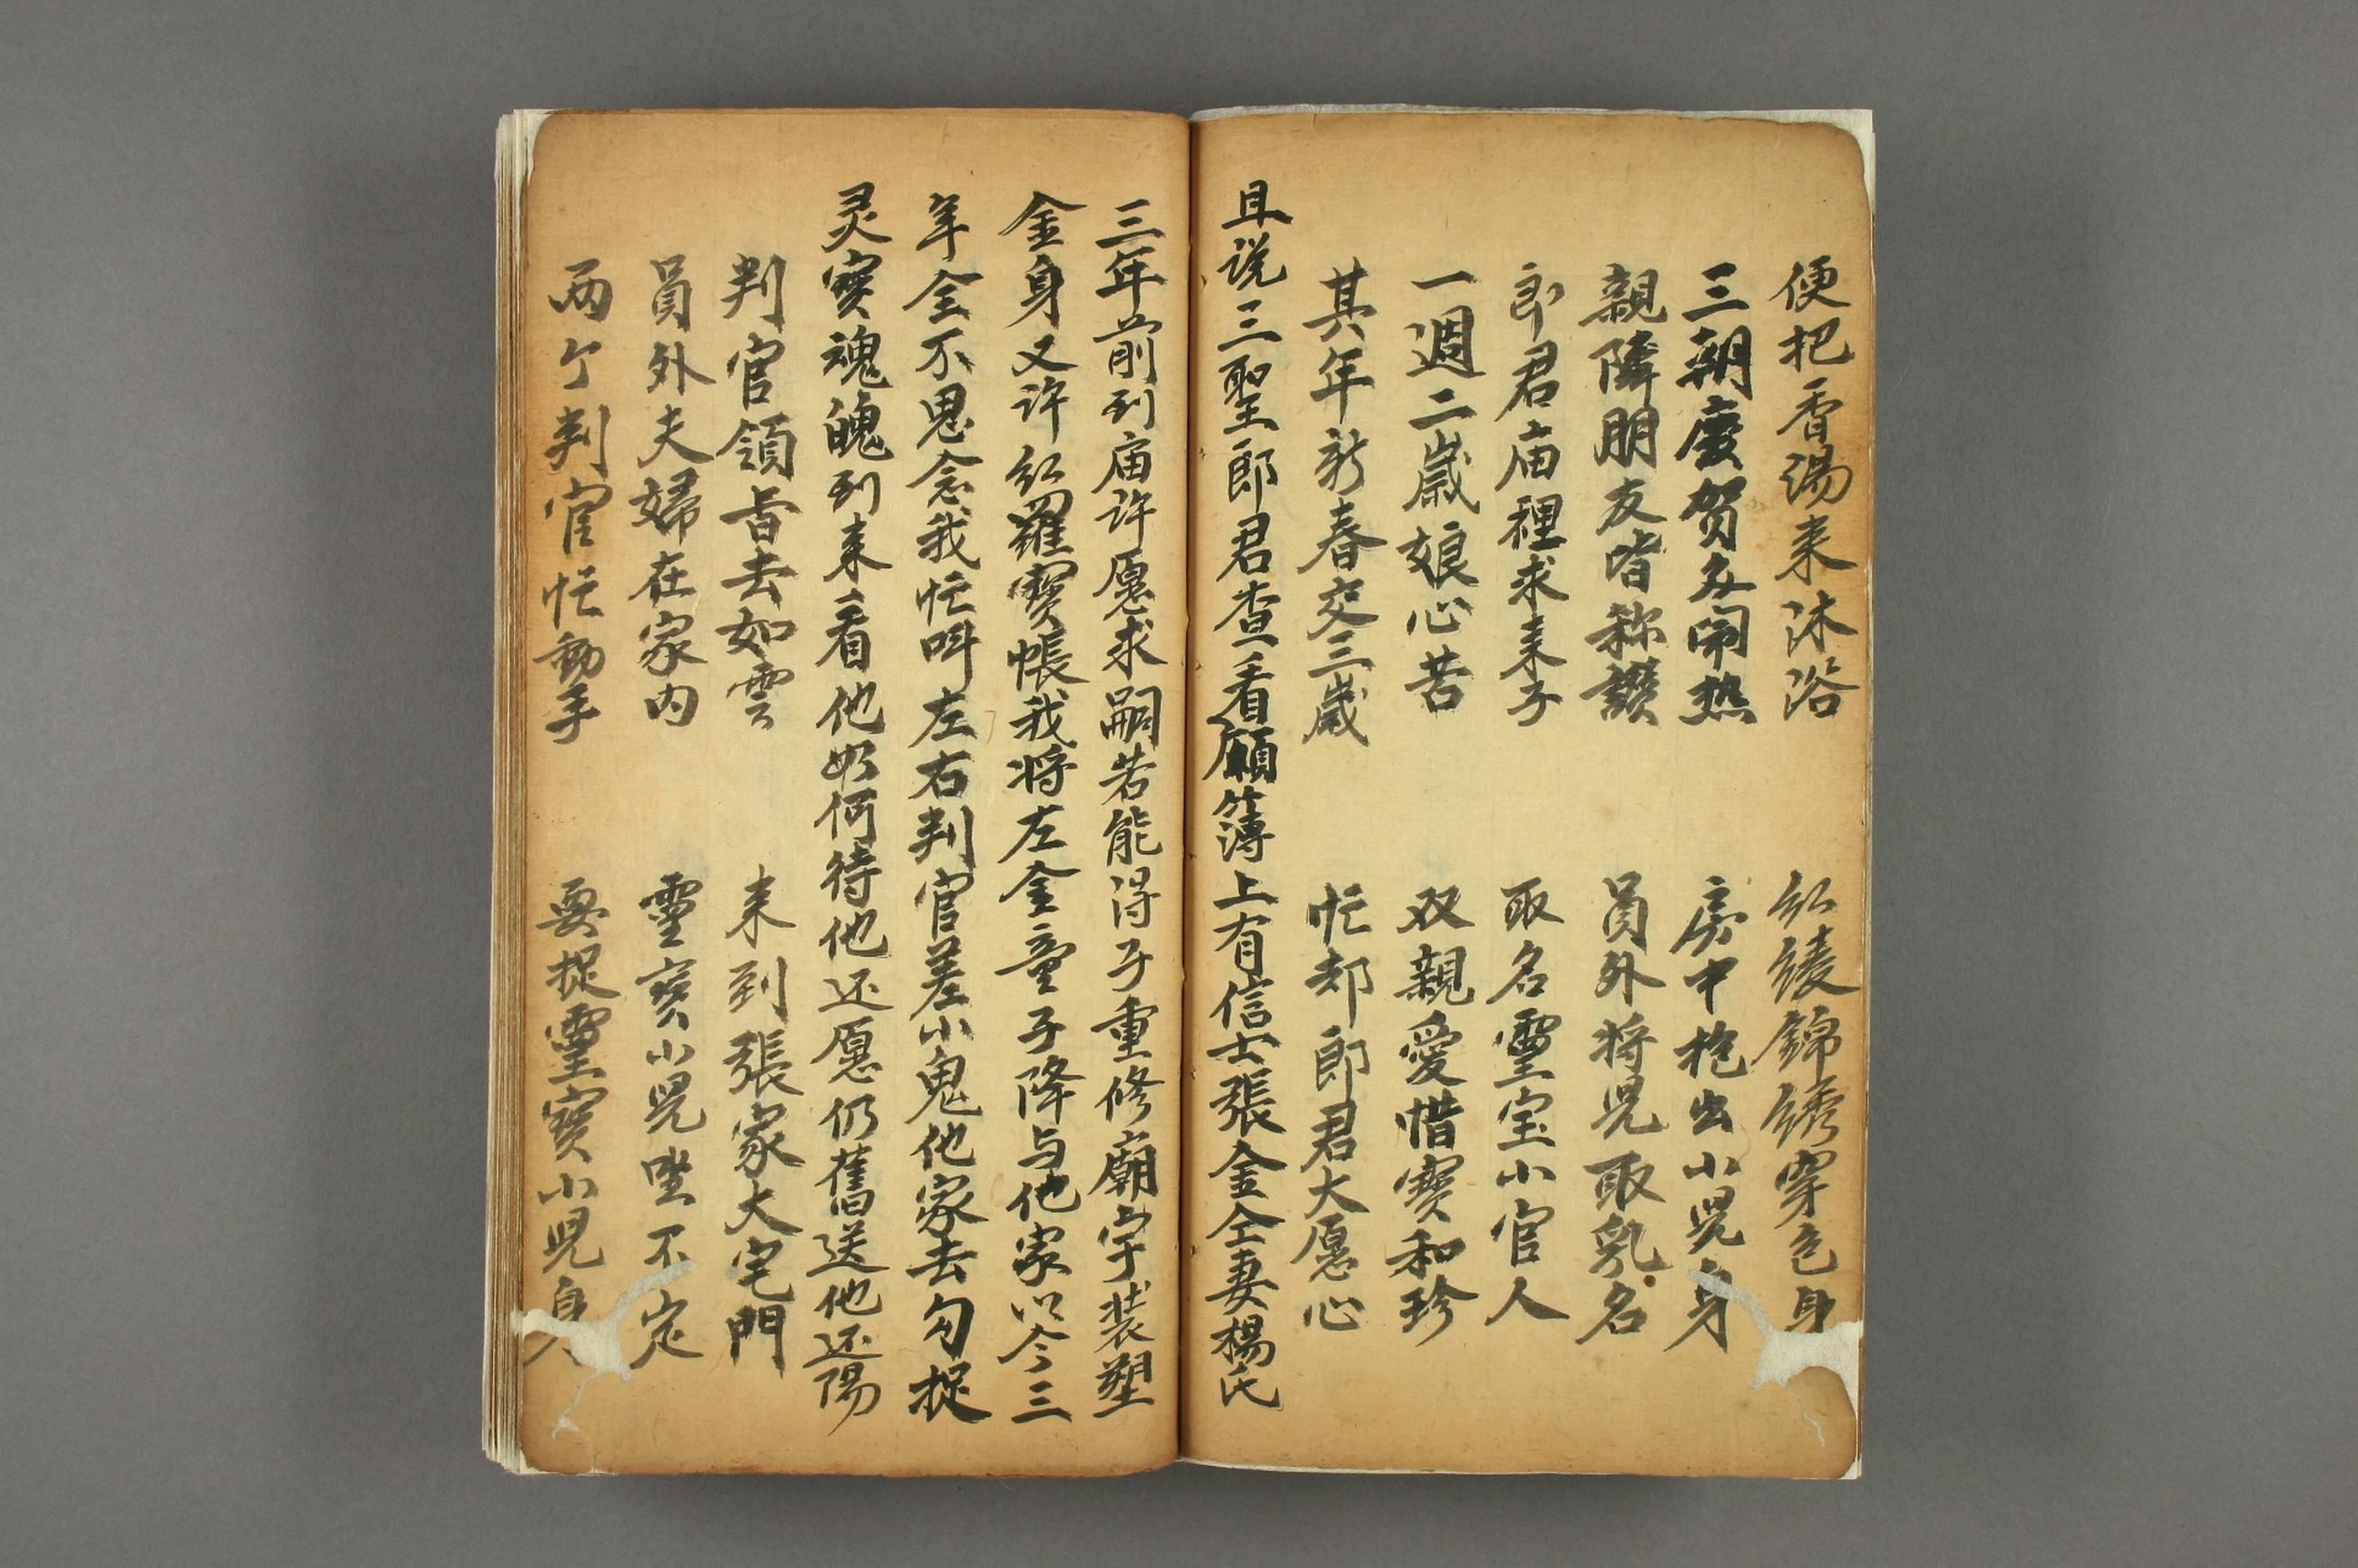 便把香湯来沐浴 紅綾錦绣穿色身
三朝慶贺多闹热 房中抱出小児身
親隣朋友皆称讚 員外将児取乳名
郎君庙裡求来子 取名霊宝小官人
一週二歲娘心苦 双親愛惜寳和珍
其年新春交三歲 忙却郎君大愿心
且说三聖郎君查看願簿上有信士張金仝妻楊氏
三年前到庙许愿求嗣若能淂子重修廟宇装塑
金身又许红羅寳帳我将左金童子降与他家以今三
年全不思念我忙叫左右判官差小鬼他家去勾捉
灵寳魂魄到来看他如何待他还愿仍舊送他还陽
判官領旨去如雲 来到張家大宅門
員外夫婦在家内 霊寳小児坐不定
两个判官忙動手 要捉霊寳小児身